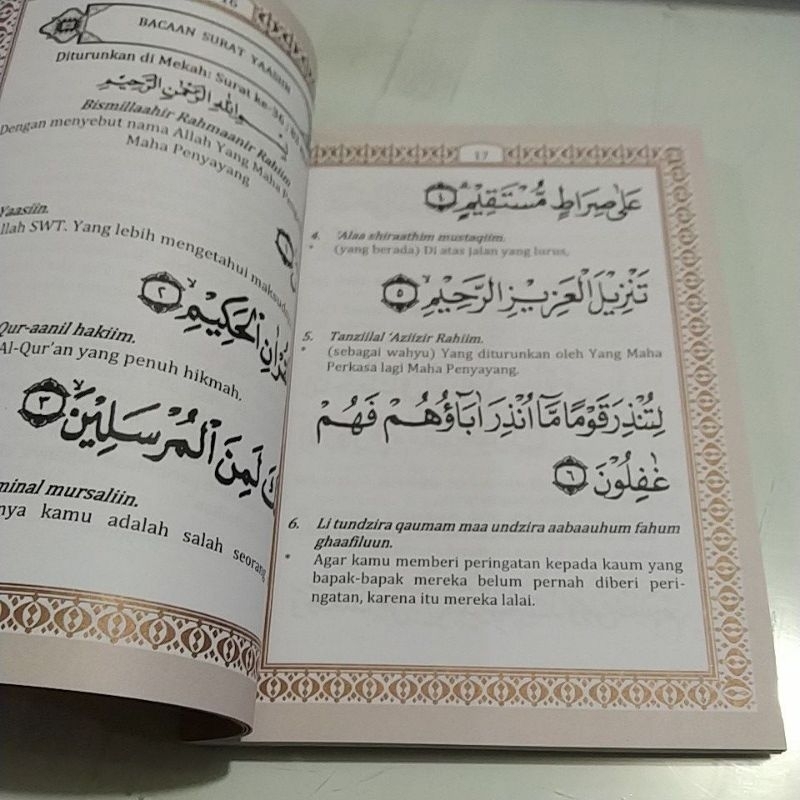 16
BACAAN SURAT YAASIIN
Diturunkan di Mekah: Surat ke-36 / 83
بِسْمِ اللهِ الرَّحْمٰنِ الرَّحِيْمِ
Bismillaahir Rahmaanir Rahiim
Dengan menyebut nama Allah Yang Maha
Maha Penyayang
١
Yaasiin.
llah SWT. Yang lebih mengetahui
الْحَكِيْمِۙ ٢
Qur-aanil hakiim.
Al-Qur'an yang penuh hikmah.
لَمِنَ الْمُرْسَلِيْنَۙ ٣
minal mursaliin.
nya kamu adalah salah seorang
17
عَلٰى صِرَاطٍ مُّسْتَقِيْمٍۗ ٤
4. 'Alaa shiraathim mustaqiim.
* (yang berada) Di atas jalan yang lurus,
تَنْزِيْلَ الْعَزِيْزِ الرَّحِيْمِۙ ٥
5. Tanziilal 'Aziizir Rahiim.
* (sebagai wahyu) Yang diturunkan oleh Yang Maha
Perkasa lagi Maha Penyayang.
لِتُنْذِرَ قَوْمًا مَّآ اُنْذِرَ اٰبَاۤؤُهُمْ فَهُمْ
غٰفِلُوْنَ ٦
6. Li tundzira qaumam maa undzira aabaauhum fahum
ghaafiluun.
* Agar kamu memberi peringatan kepada kaum yang
bapak-bapak mereka belum pernah diberi peri-
ngatan, karena itu mereka lalai.